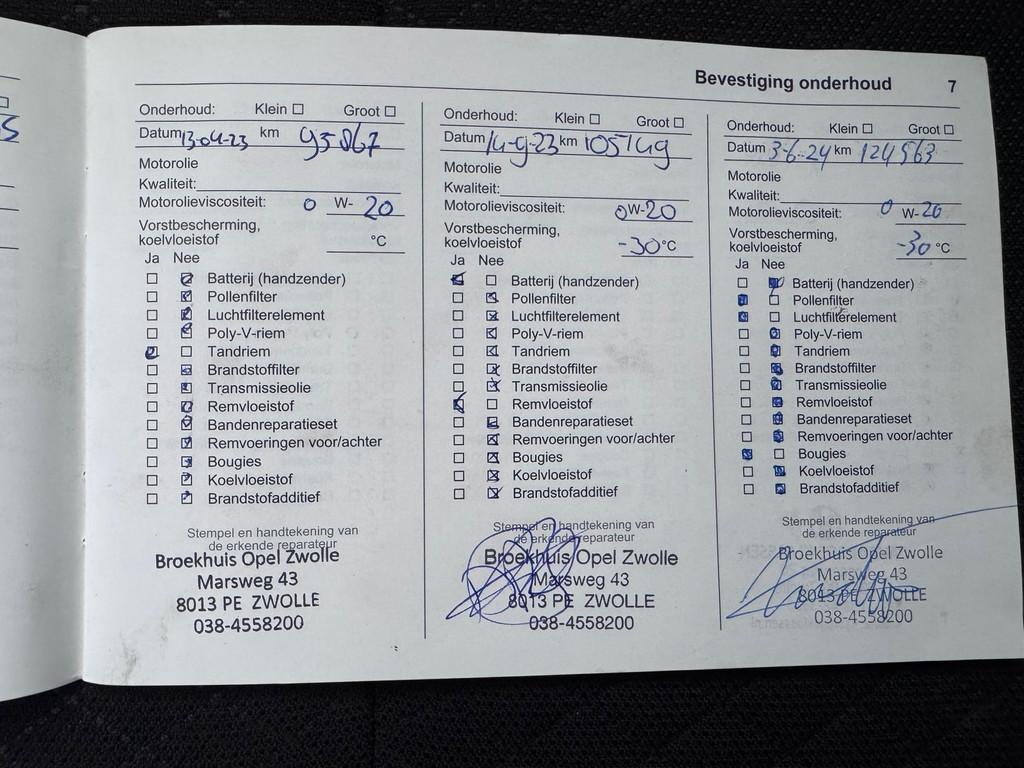 Bevestiging onderhoud 7
Onderhoud: Klein ☐ Groot ☐
Datum 13-04-23 km 95867
Motorolie
Kwaliteit:
Motorolieviscositeit: 0 W- 20
Vorstbescherming,
koelvloeistof °C
Ja Nee
Batterij (handzender)
Pollenfilter
Luchtfilterelement
Poly-V-riem
Tandriem
Brandstoffilter
Transmissieolie
Remvloeistof
Bandenreparatieset
Remvoeringen voor/achter
Bougies
Koelvloeistof
Brandstofadditief
Stempel en handtekening van
de erkende reparateur
Broekhuis Opel Zwolle
Marsweg 43
8013 PE ZWOLLE
038-4558200
Onderhoud: Klein ☐ Groot ☐
Datum 14-9-23 km 105749
Motorolie
Kwaliteit:
Motorolieviscositeit: 0W-20
Vorstbescherming,
koelvloeistof -30°C
Ja Nee
Batterij (handzender)
Pollenfilter
Luchtfilterelement
Poly-V-riem
Tandriem
Brandstoffilter
Transmissieolie
Remvloeistof
Bandenreparatieset
Remvoeringen voor/achter
Bougies
Koelvloeistof
Brandstofadditief
Stempel en handtekening van
de erkende reparateur
Broekhuis Opel Zwolle
Marsweg 43
8013 PE ZWOLLE
038-4558200
Onderhoud: Klein ☐ Groot ☐
Datum 3-6-24 km 124563
Motorolie
Kwaliteit:
Motorolieviscositeit: 0 W-20
Vorstbescherming,
koelvloeistof -30 °C
Ja Nee
Batterij (handzender)
Pollenfilter
Luchtfilterelement
Poly-V-riem
Tandriem
Brandstoffilter
Transmissieolie
Remvloeistof
Bandenreparatieset
Remvoeringen voor/achter
Bougies
Koelvloeistof
Brandstofadditief
Stempel en handtekening van
de erkende reparateur
Broekhuis Opel Zwolle
Marsweg 43
8013 PE ZWOLLE
038-4558200